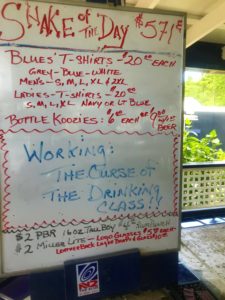 SNAKE OF THE DAY $571 E
BLUES' T-SHIRTS - $20 00 EACH
GREY - BLUE - WHITE
MEN'S - S, M, L, XL & 2XL
LADIES - T-SHIRTS - $20 00
S, M, L, XL NAVY OR LT BLUE
BOTTLE KOOZIES: $6 EACH OR
BEER
WORKING:
THE CURSE OF
THE DRINKING
CLASS!!
$2 PBR 16oz TALL BOY $4
$2 MILLER LITE - LOGO GLASSES $5 EACH